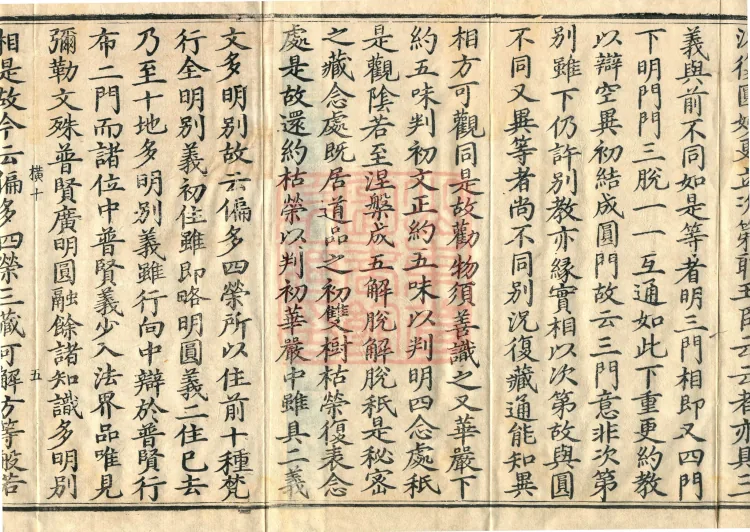 義與前不同如是等者明三門相即又四門
下明門門三脫一一互通如此下重更約教
以辯空異初結成圓門故云三門意非次第
別雖下仍許別教亦緣實相以次第故與圓
不同又異等者尚不同別況復藏通能知異
相方可觀同是故勸物須善識之又華嚴下
約五味判初文正約五味以判明四念處秖
是觀陰若至涅槃成五解脫解脫秖是秘密
之藏念處既居道品之初雙樹枯榮復表念
處是故還約枯榮以判初華嚴中雖具二義
文多明別故云偏多四榮所以住前十種梵
行全明別義初住雖即略明圓義二住已去
乃至十地多明別義雖行向中辯於普賢行
布二門而諸位中普賢義少入法界品唯見
彌勒文殊普賢廣明圓融餘諸知識多明別
橫十 五
相是故今云偏多四榮三藏可解方等般若